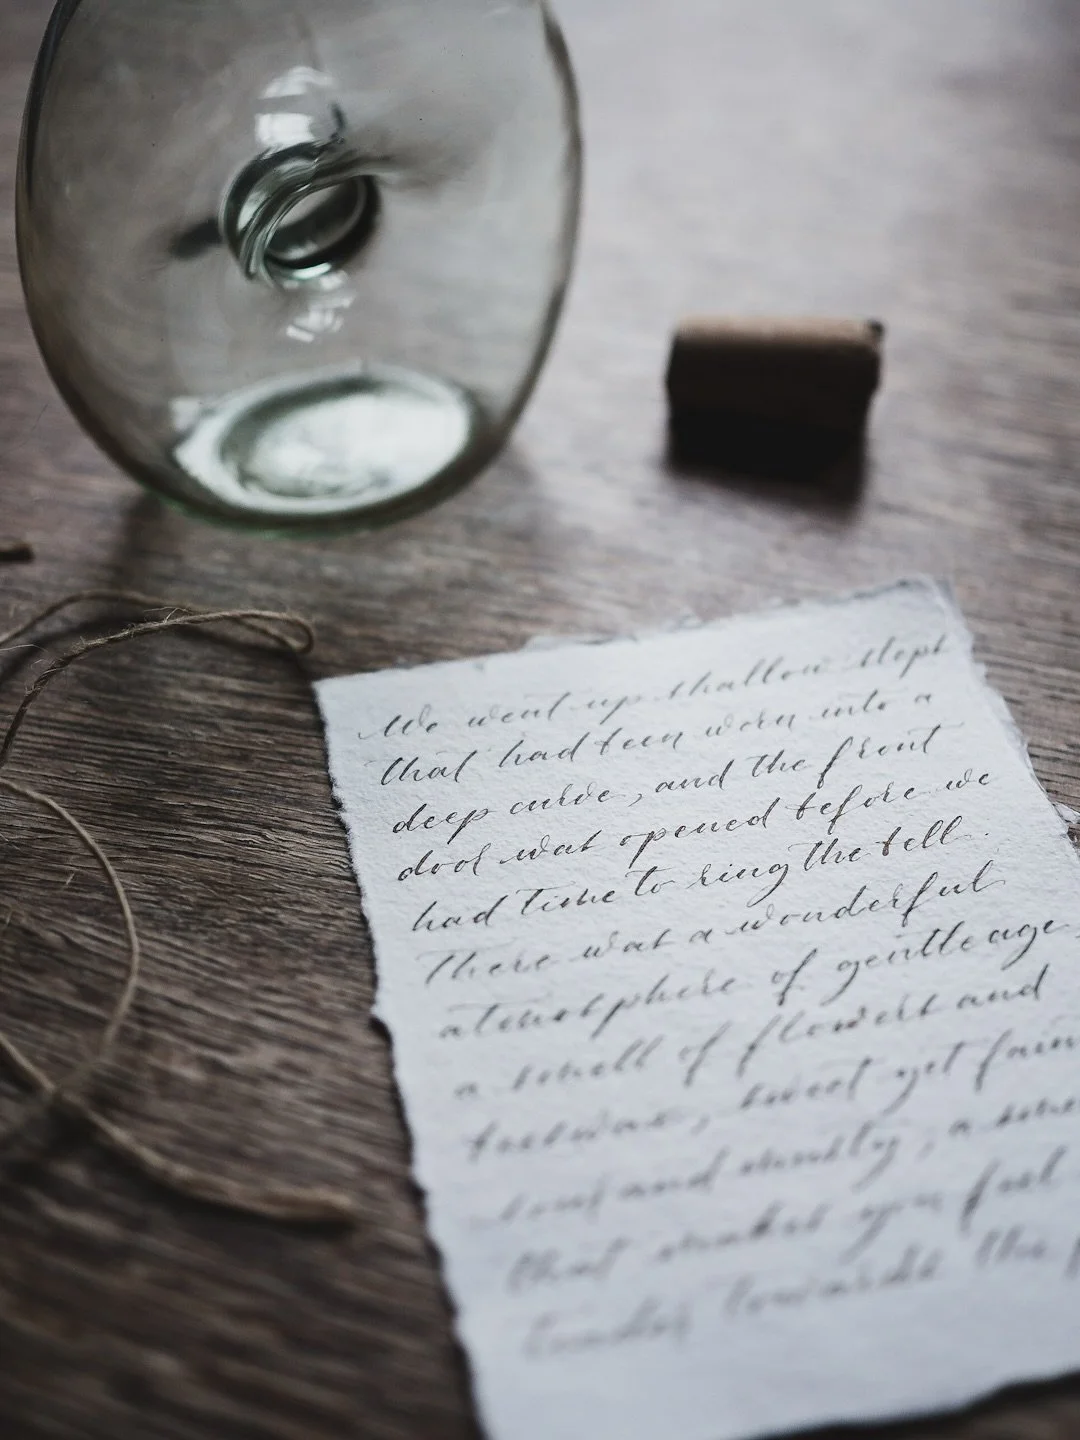 We went up shallow steps
that had been worn into a
deep curve, and the front
door was opened before we
had time to ring the bell.
There was a wonderful
atmosphere of gentle age,
a smell of flowers and
beeswax, sweet yet
and musty, a
that makes you feel
tender towards the